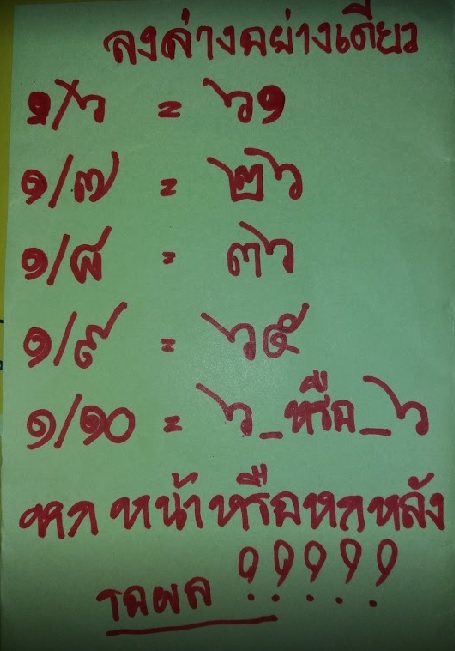 ลงล่างอย่างเดียว
๑/๖ = ๖๑
๑/๗ = ๒๖
๑/๘ = ๓๖
๑/๙ = ๖๕
๑/๑๐ = ๖_หรือ_๖
หกหน้าหรือหกหลัง
รอผล ?????